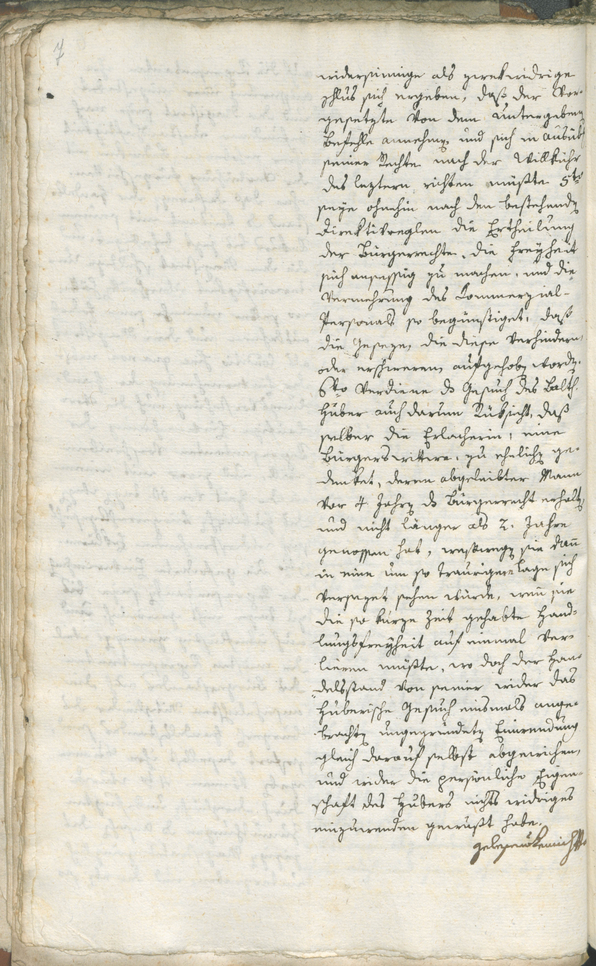 7
widersinnige als zwekwidrige
schlus sich ergeben, daß der Vor-
gesetzte von dem Untergebenen
Befehle annehmen, und sich in Ausübung
seiner Rechte nach der Willkühr
des leztern richten müßte 5to
seye ohnehin nach den bestehenden
Direktivreglen die Ertheilung
der Bürgerrechte, die Freyheit
sich ansässig zu machen, und die
Vermehrung des Kommerzial-
Personals so begünstiget, daß
die Geseze, die diese verhindern
oder erschweren aufgehoben worden.
6to Verdiene das Gesuch des Balth.
Huber auch darum Rüksicht, daß
selber die Erlacherin, eine
Bürgerswittwe, zu ehelichen ge-
denket, deren abgeleibter Mann
vor 4 Jahren das Bürgerrecht erhalten
und nicht länger als 2. Jahre
genossen hat, weswegen sie dann
in eine um so traurigere Lage sich
versezet sehen würde, wenn sie
die so kurze Zeit gehabte Hand-
lungsfreyheit auf einmal ver-
lieren müßte, wo doch der Han-
delsstand von seiner wider das
Huberische Gesuch einsmals ange-
brachten ungegründeten Einwendung
gleich darauf selbst abgewichen,
und wider die persönliche Eigen-
schaft des Hubers nichts widriges
einzuwenden gewußt habe.